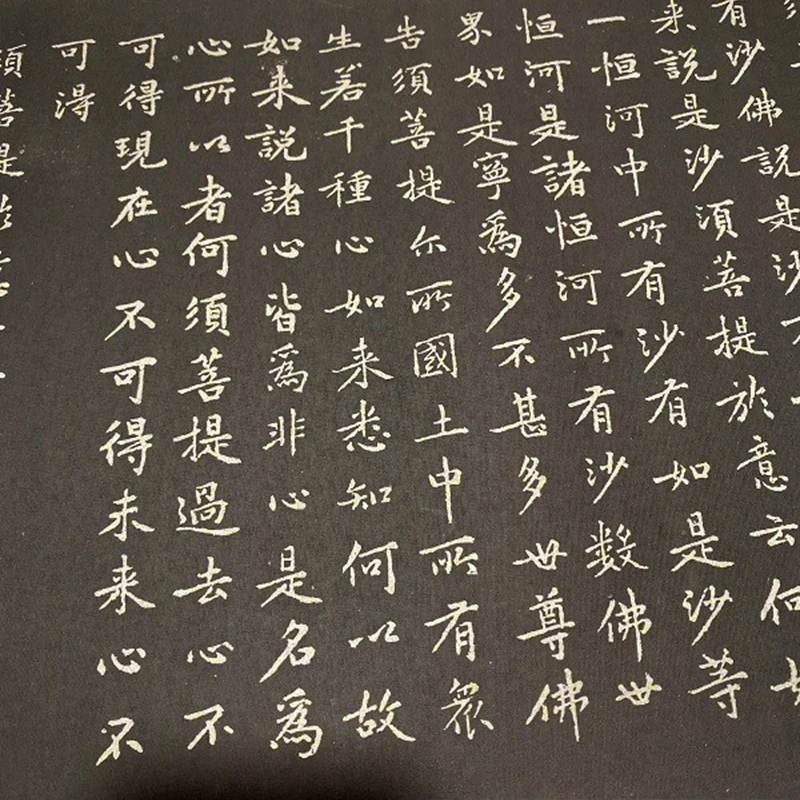 有沙佛説是沙不
来説是沙須菩提於意云何如
一恒河中所有沙有如是沙等
恒河是諸恒河所有沙數佛世
界如是寧爲多不甚多世尊佛
告須菩提尔所國土中所有衆
生若干種心如来悉知何以故
如来説諸心皆爲非心是名爲
心所以者何須菩提過去心不
可得現在心不可得未来心不
可得
須菩提於意